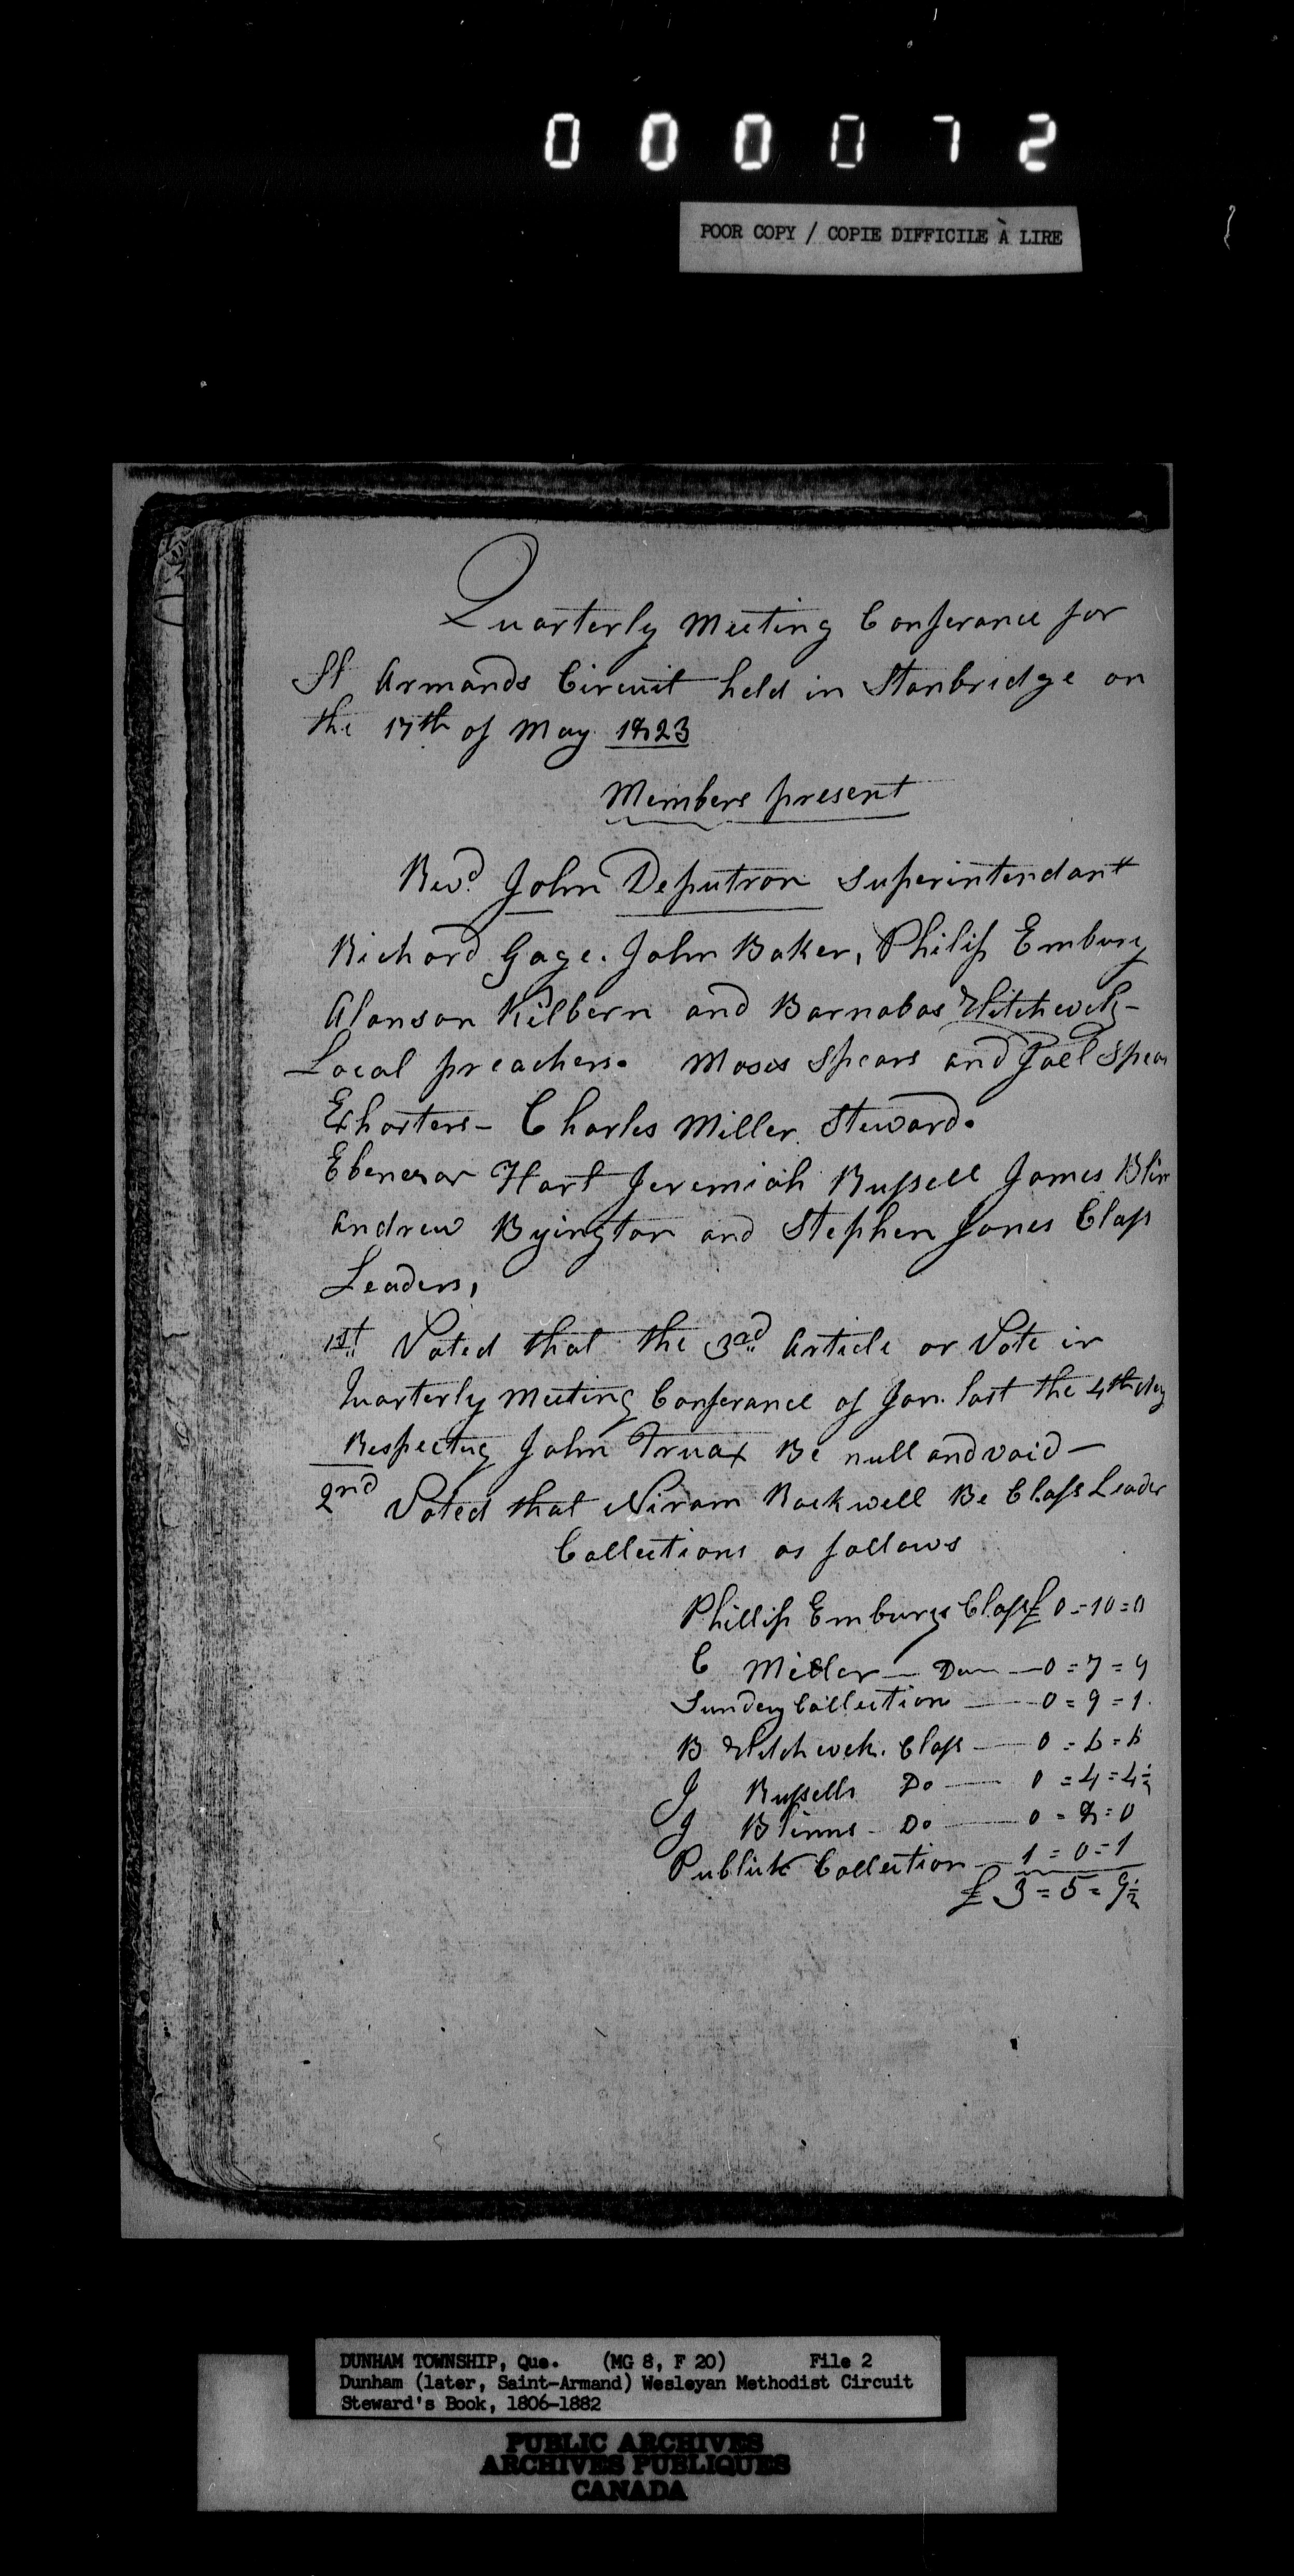 000072
POOR COPY / COPIE DIFFICILE À LIRE
Quarterly Meeting Conferance for
St Armands Circuit held in Stanbridge on
the 17th of May 1823
Members present
Revd. John Deputron Superintendant
Richard Gage. John Baker, Philip Embury
Alonson Kilbern and Barnabas Hitchcock-
Local preachers. Moses Spears and Joel Spear
Exhorters- Charles Miller Steward.
Ebenezar Hart Jeremiah Russell James Blin
Andrew Byington and Stephen Jones Class
Leaders,
1st Voted that the 3rd Article or Vote in
Quarterly Meeting Conferance of Jan. last the 4th day
Respecting John Truax Be null and void—
2nd Voted that Niram Rockwell Be Class Leader
Collections as follows
Phillip Emburys Class £ 0=10=0
C Miller — Do — 0=7=9
Sunday Collection — 0=9=1.
B Hitchcock. Class — 0=6=6
J Russells Do — 0=4=4½
J Blinns - Do — 0=8=0
Publick Collection — 1=0=1
£ 3=5=9½
DUNHAM TOWNSHIP, Que. (MG 8, F 20) File 2
Dunham (later, Saint-Armand) Wesleyan Methodist Circuit
Steward's Book, 1806-1882
PUBLIC ARCHIVES
ARCHIVES PUBLIQUES
CANADA